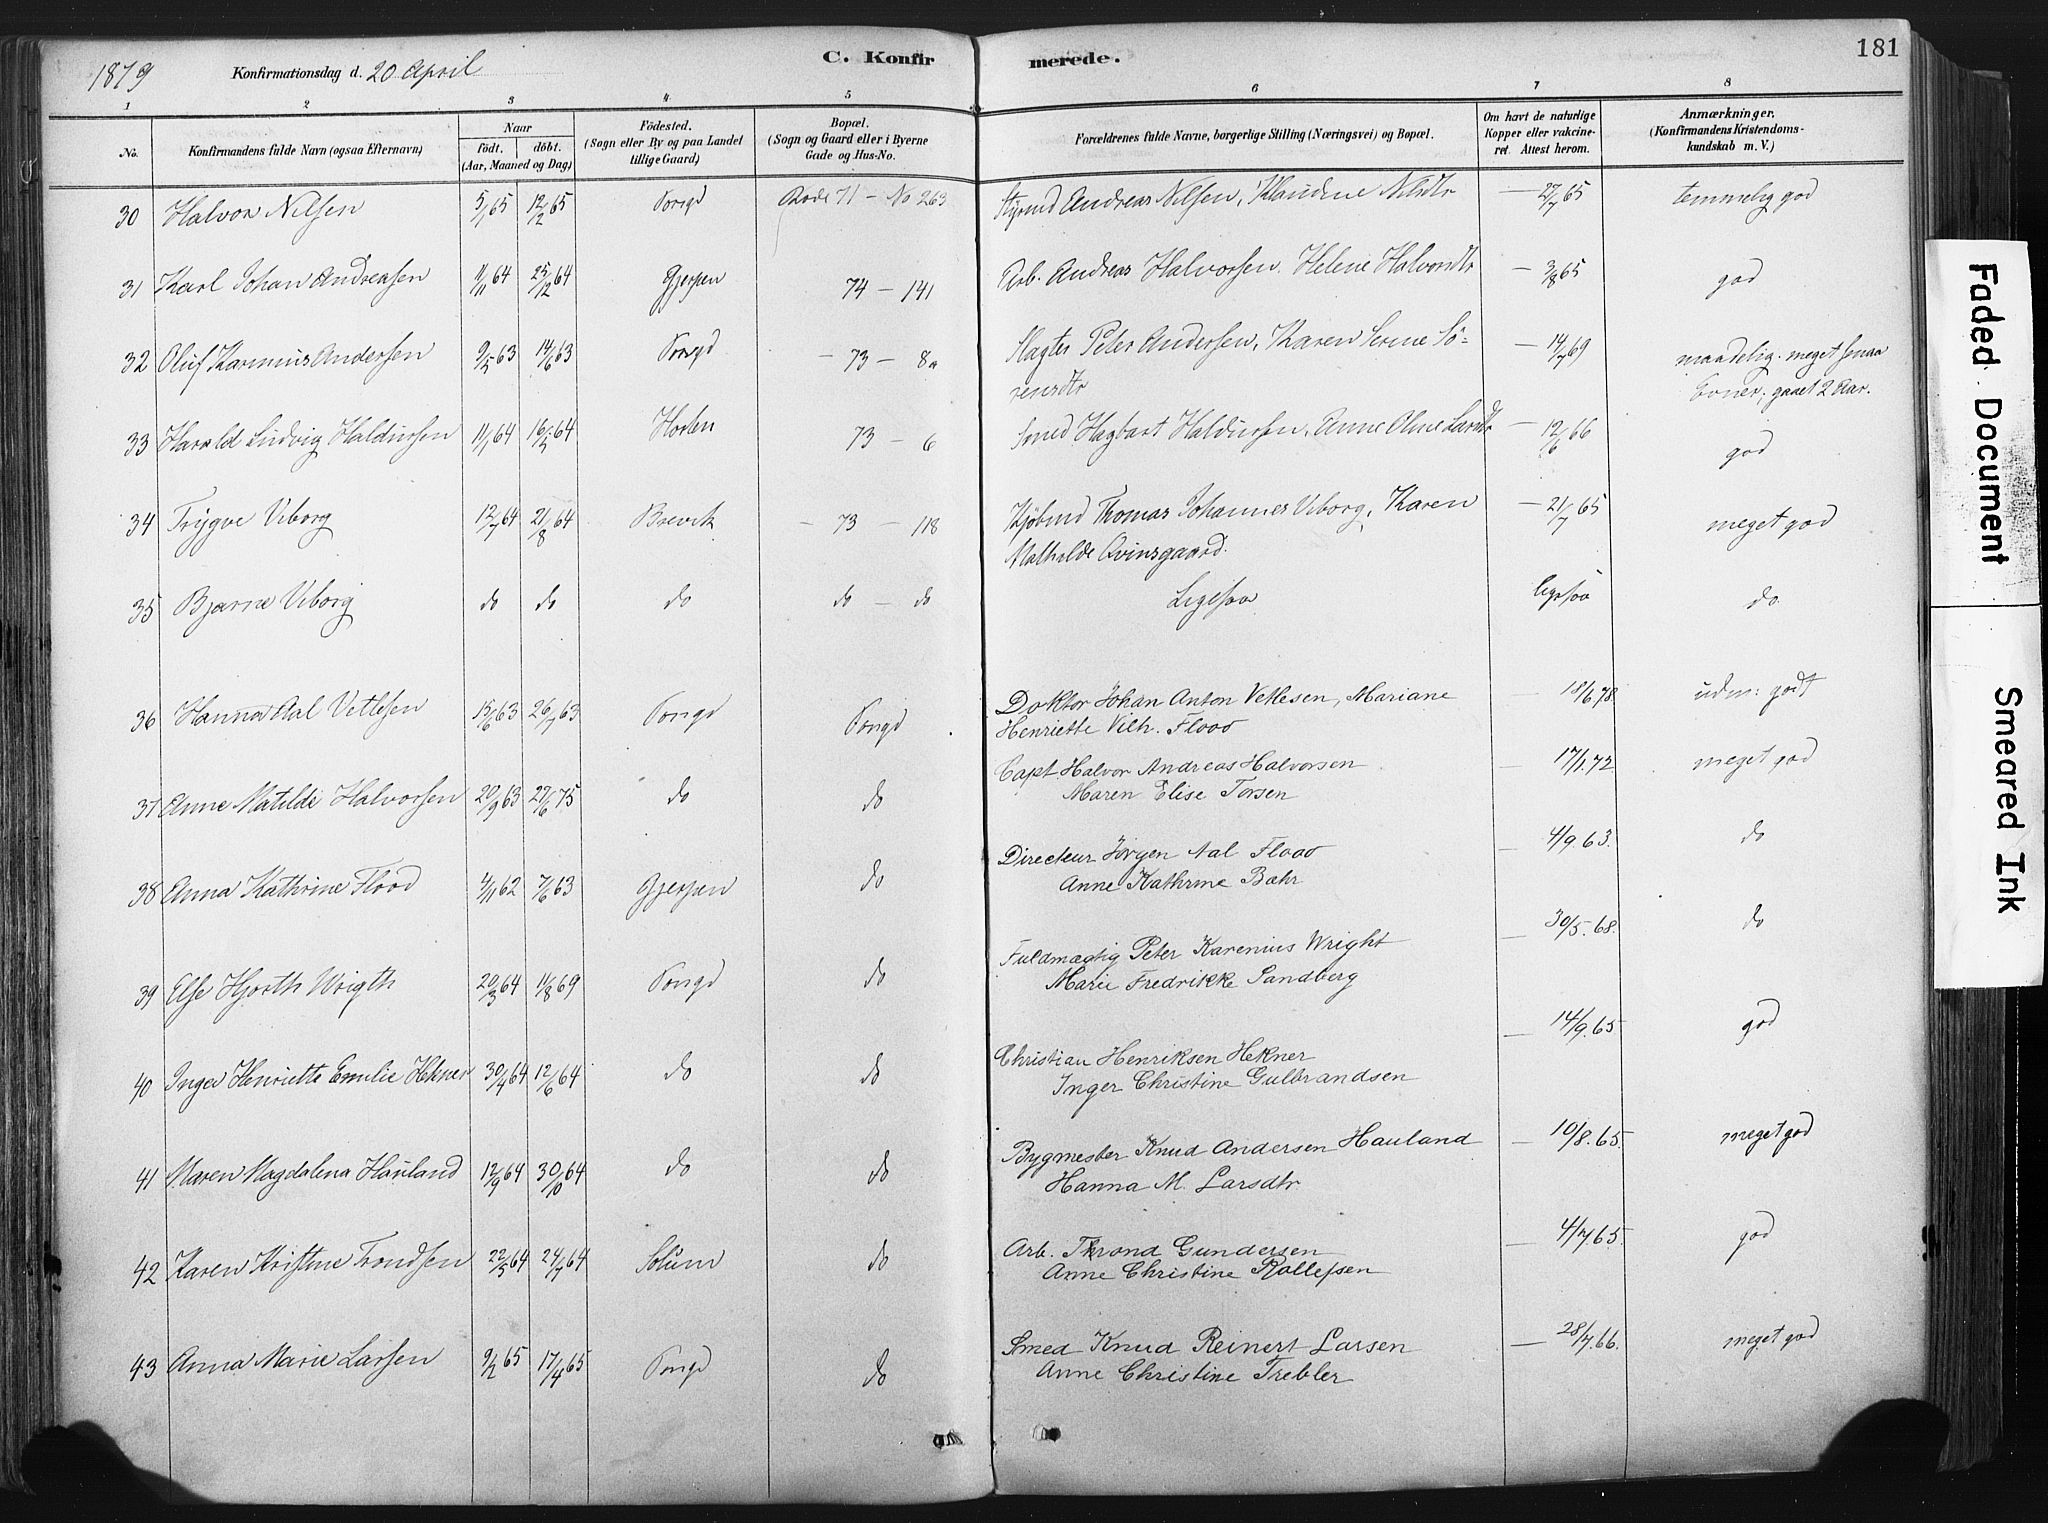 1879 Konfirmationsdag d. 20 April
C. Konfir
merede.
181
1 2 3 4 5 6 7 8
No.
Konfirmandens fulde Navn (ogsaa Efternavn)
Naar
födt. döbt.
(Aar, Maaned og Dag)
Födested.
(Sogn eller By og paa Landet
tillige Gaard)
Bopæl.
(Sogn og Gaard eller i Byerne
Gade og Hus-No.
Forældrenes fulde Navne, borgerlige Stilling (Næringsvei) og Bopæl.
Om havt de naturlige
Kopper eller vakcine-
ret. Attest herom.
Anmærkninger.
(Konfirmandens Kristendoms-
kundskab m. V.)
30 Halvor Nilsen 5/1 65 12/2 65 Porsgd Rode 71 – No 263 Styrmd Andreas Nilsen, Klaudine Nilsdtr — 27/7 65 temmelig god
31 Karl Johan Andreasen 11/11 64 25/12 64 Gjerpen 74 – 141 Arb. Andreas Halvorsen. Helene Halvorsdtr — 3/8 65 god
32 Oluf Karinius Andersen 9/5 63 14/6 63 Porsgd – 73 – 8a Slagter Peter Andersen, Karen Serine Sö-
rensdtr — 14/7 69 maadelig. meget smaa
Evner, gaaet 2 Aar.
33 Harald Ludvig Haldursen 11/1 64 16/5 64 Horten 73 – 6 Smed Hagbart Haldursen, Anne Oline Larsdtr — 12/6 66 god
34 Trygve Viborg 12/7 64 21/8 64 Brevik – 73 – 118 Kjöbmd Thomas Johannes Viborg, Karen
Mathilde Qvinsgaard. — 21/7 65 meget god
35 Bjarne Viborg do do do do – do Ligesaa ligesaa do
36 Hanna Aal Vetlesen 15/6 63 26/7 63 Porsgd Porsgd Doktor Johan Anton Vetlesen, Mariane
Henriette Vilh. Flood — 18/6 78. udm: godt
37 Anne Matilde Halvorsen 20/9 63 27/6 75 do do Capt. Halvor Andreas Halvorsen
Maren Elise Torsen — 17/1. 72 meget god
38 Anna Kathrine Flood 4/11 62 7/6 63 Gjerpen do Directeur Jörgen Aal Flood
Anne Kathrine Bahr — 4/9 63. do
39 Else Hjorth Wrigth 20/3 64 11/8 69 Porsgd do Fuldmægtig Peter Karenius Wright
Marie Fredrikke Sandberg — 30/5. 68. do
40 Inger Henriette Emilie Hekner 30/4 64 12/6 64 do do Christian Henriksen Hekner
Inger Christine Gulbrandsen — 14/9. 65 god
41 Maren Magdalena Hauland 12/9 64 30/10 64 do do Bygmester Knud Andersen Hauland
Hanna M. Larsdtr — 10/8. 65. meget god
42 Karen Kristine Trondsen 22/5 64 24/7 64 Solum do Arb. Thrond Gundersen
Anne Christine Rollefsen — 4/7 65. god
43 Anna Marie Larsen 9/2 65 17/4 65 Porsgd do Smed Knud Reinert Larsen
Anne Christine Trebler — 28/7. 66. meget god
Faded Document
Smeared Ink